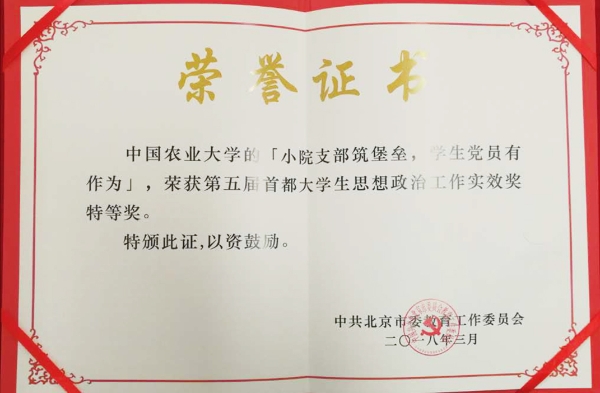 荣誉证书
中国农业大学的「小院支部筑堡垒，学生党员有
作为」，荣获第五届首都大学生思想政治工作实效奖
特等奖。
特颁此证，以资鼓励。
中共北京市委教育工作委员会
二〇一八年三月